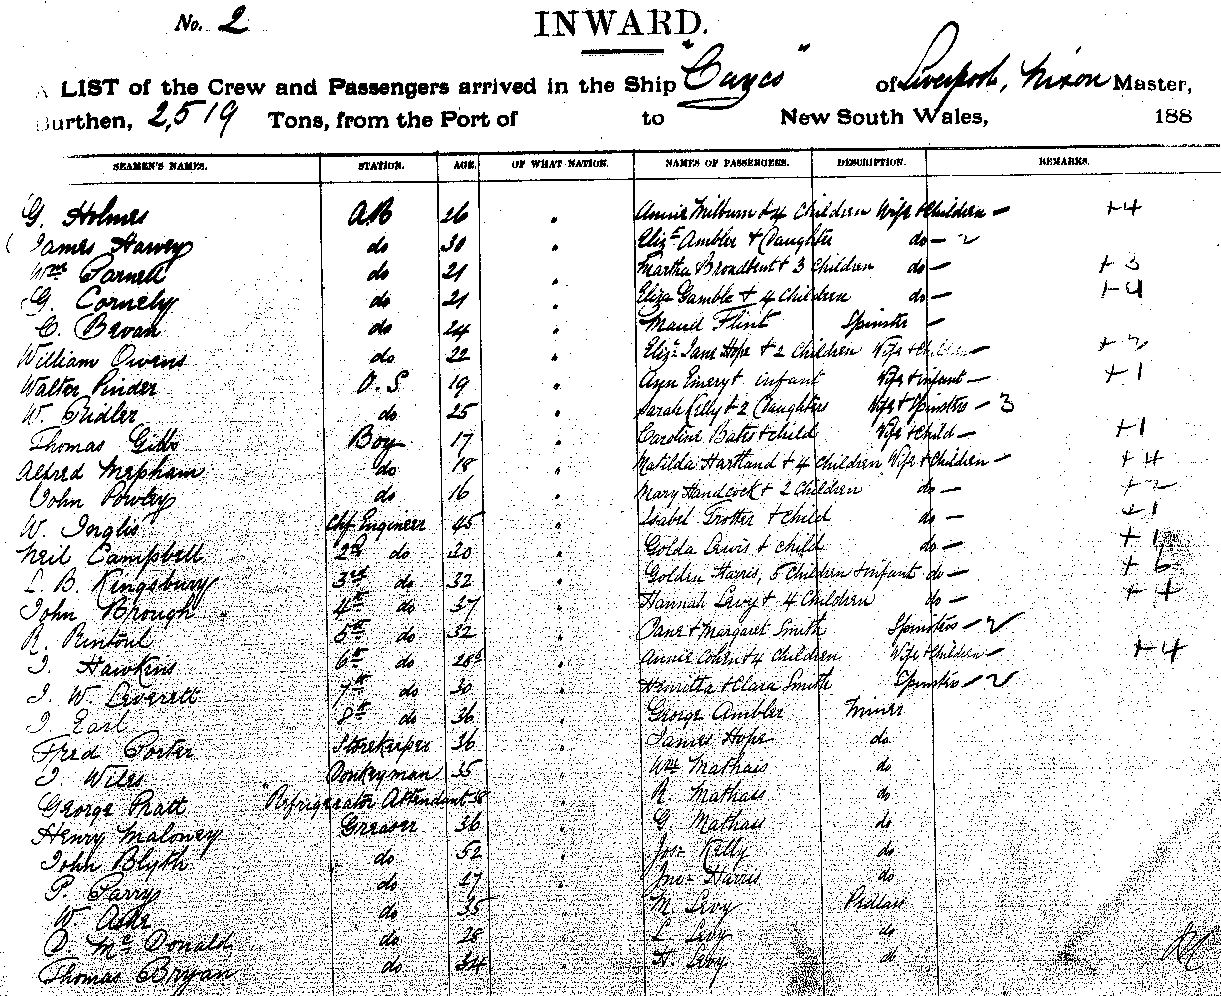 No. 2
INWARD.
A LIST of the Crew and Passengers arrived in the Ship "Cuzco" of Liverpool, Nixon Master,
Burthen, 2,519 Tons, from the Port of to New South Wales, 188
SEAMEN'S NAMES. STATION. AGE. OF WHAT NATION. NAMES OF PASSENGERS. DESCRIPTION. REMARKS.
G. Holmes AB 26 " Annie Milburn + 4 Children Wife + Children – +4
James Harvey do 30 " Elizth Ambler + Daughter do – 2
Wm Parnell do 21 " Martha Broadbent + 3 Children do – +3
G. Cornely do 21 " Eliza Gamble + 4 Children do – +4
C. Bevan do 24 " Maud Flint Spinster –
William Owens do 22 " Elizth Jane Hope + 2 Children Wife + Children – +2
Walter Pinder O.S 19 " Ann Emery + infant Wife + infant – +1
W. Pudler do 25 " Sarah Kelly + 2 Daughters Wife + Spinsters – 3
Thomas Gibbs Boy 17 " Caroline Bates + child Wife + Child – +1
Alfred Mepham do 18 " Matilda Hartland + 4 Children Wife + Children – +4
John Powley do 16 " Mary Handcock + 2 Children do – +2
W. Inglis Chf Engineer 45 " Isabel Trotter + Child do – +1
Neil Campbell 2nd do 30 " Golda Lewis + child do – +1
L. B. Kingsbury 3rd do 32 " Golden Harris, 5 Children + infant do – +6
John Brough 4th do 37 " Hannah Levy + 4 Children do – +4
R. Rintoul 5th do 32 " Jane + Margaret Smith Spinsters – 2
J. Hawkins 6th do 28 " Annie Cohen + 4 Children Wife + Children – +4
J. W. Leverett 7th do 30 " Henrietta + Clara Smith Spinsters – 2
J Earl 8th do 36 " George Ambler Miner
Fred Porter Storekeeper 36 " James Hope do
J Wiles Donkeyman 35 " Wm Mathais do
George Pratt Refrigerator Attendant 38 " R. Mathais do
Henry Maloney Greaser 36 " G Mathais do
John Blyth do 52 " Jos. Kelly do
P. Parry do 27 " Jno. Harris do
W. Ashe do 35 M. Levy Pedlars
D. McDonald do 28 L Levy do
Thomas Bryan do 34 H Levy do